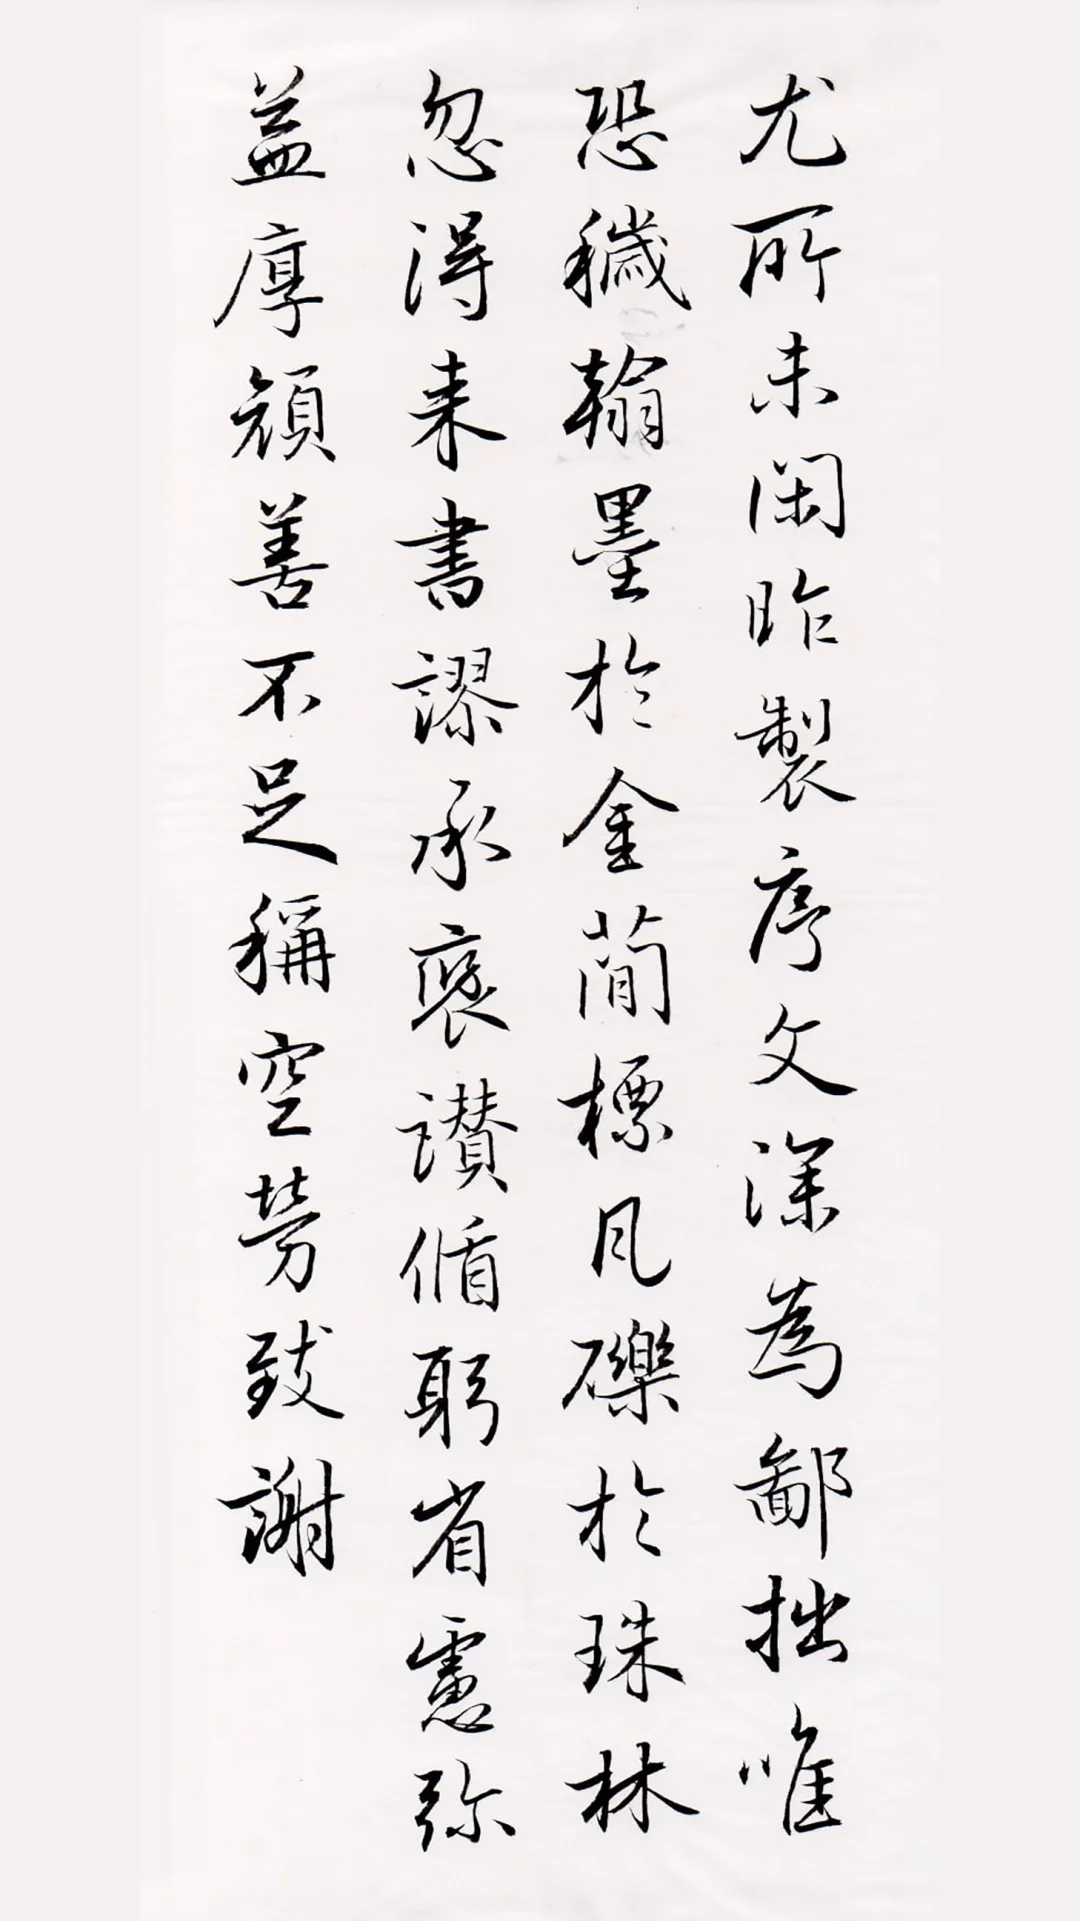 尤所未閑昨製序文深為鄙拙唯
恐穢翰墨於金簡標凡礫於珠林
忽得来書謬承褒讃循躬省慮弥
益厚顔善不足稱空勞致謝